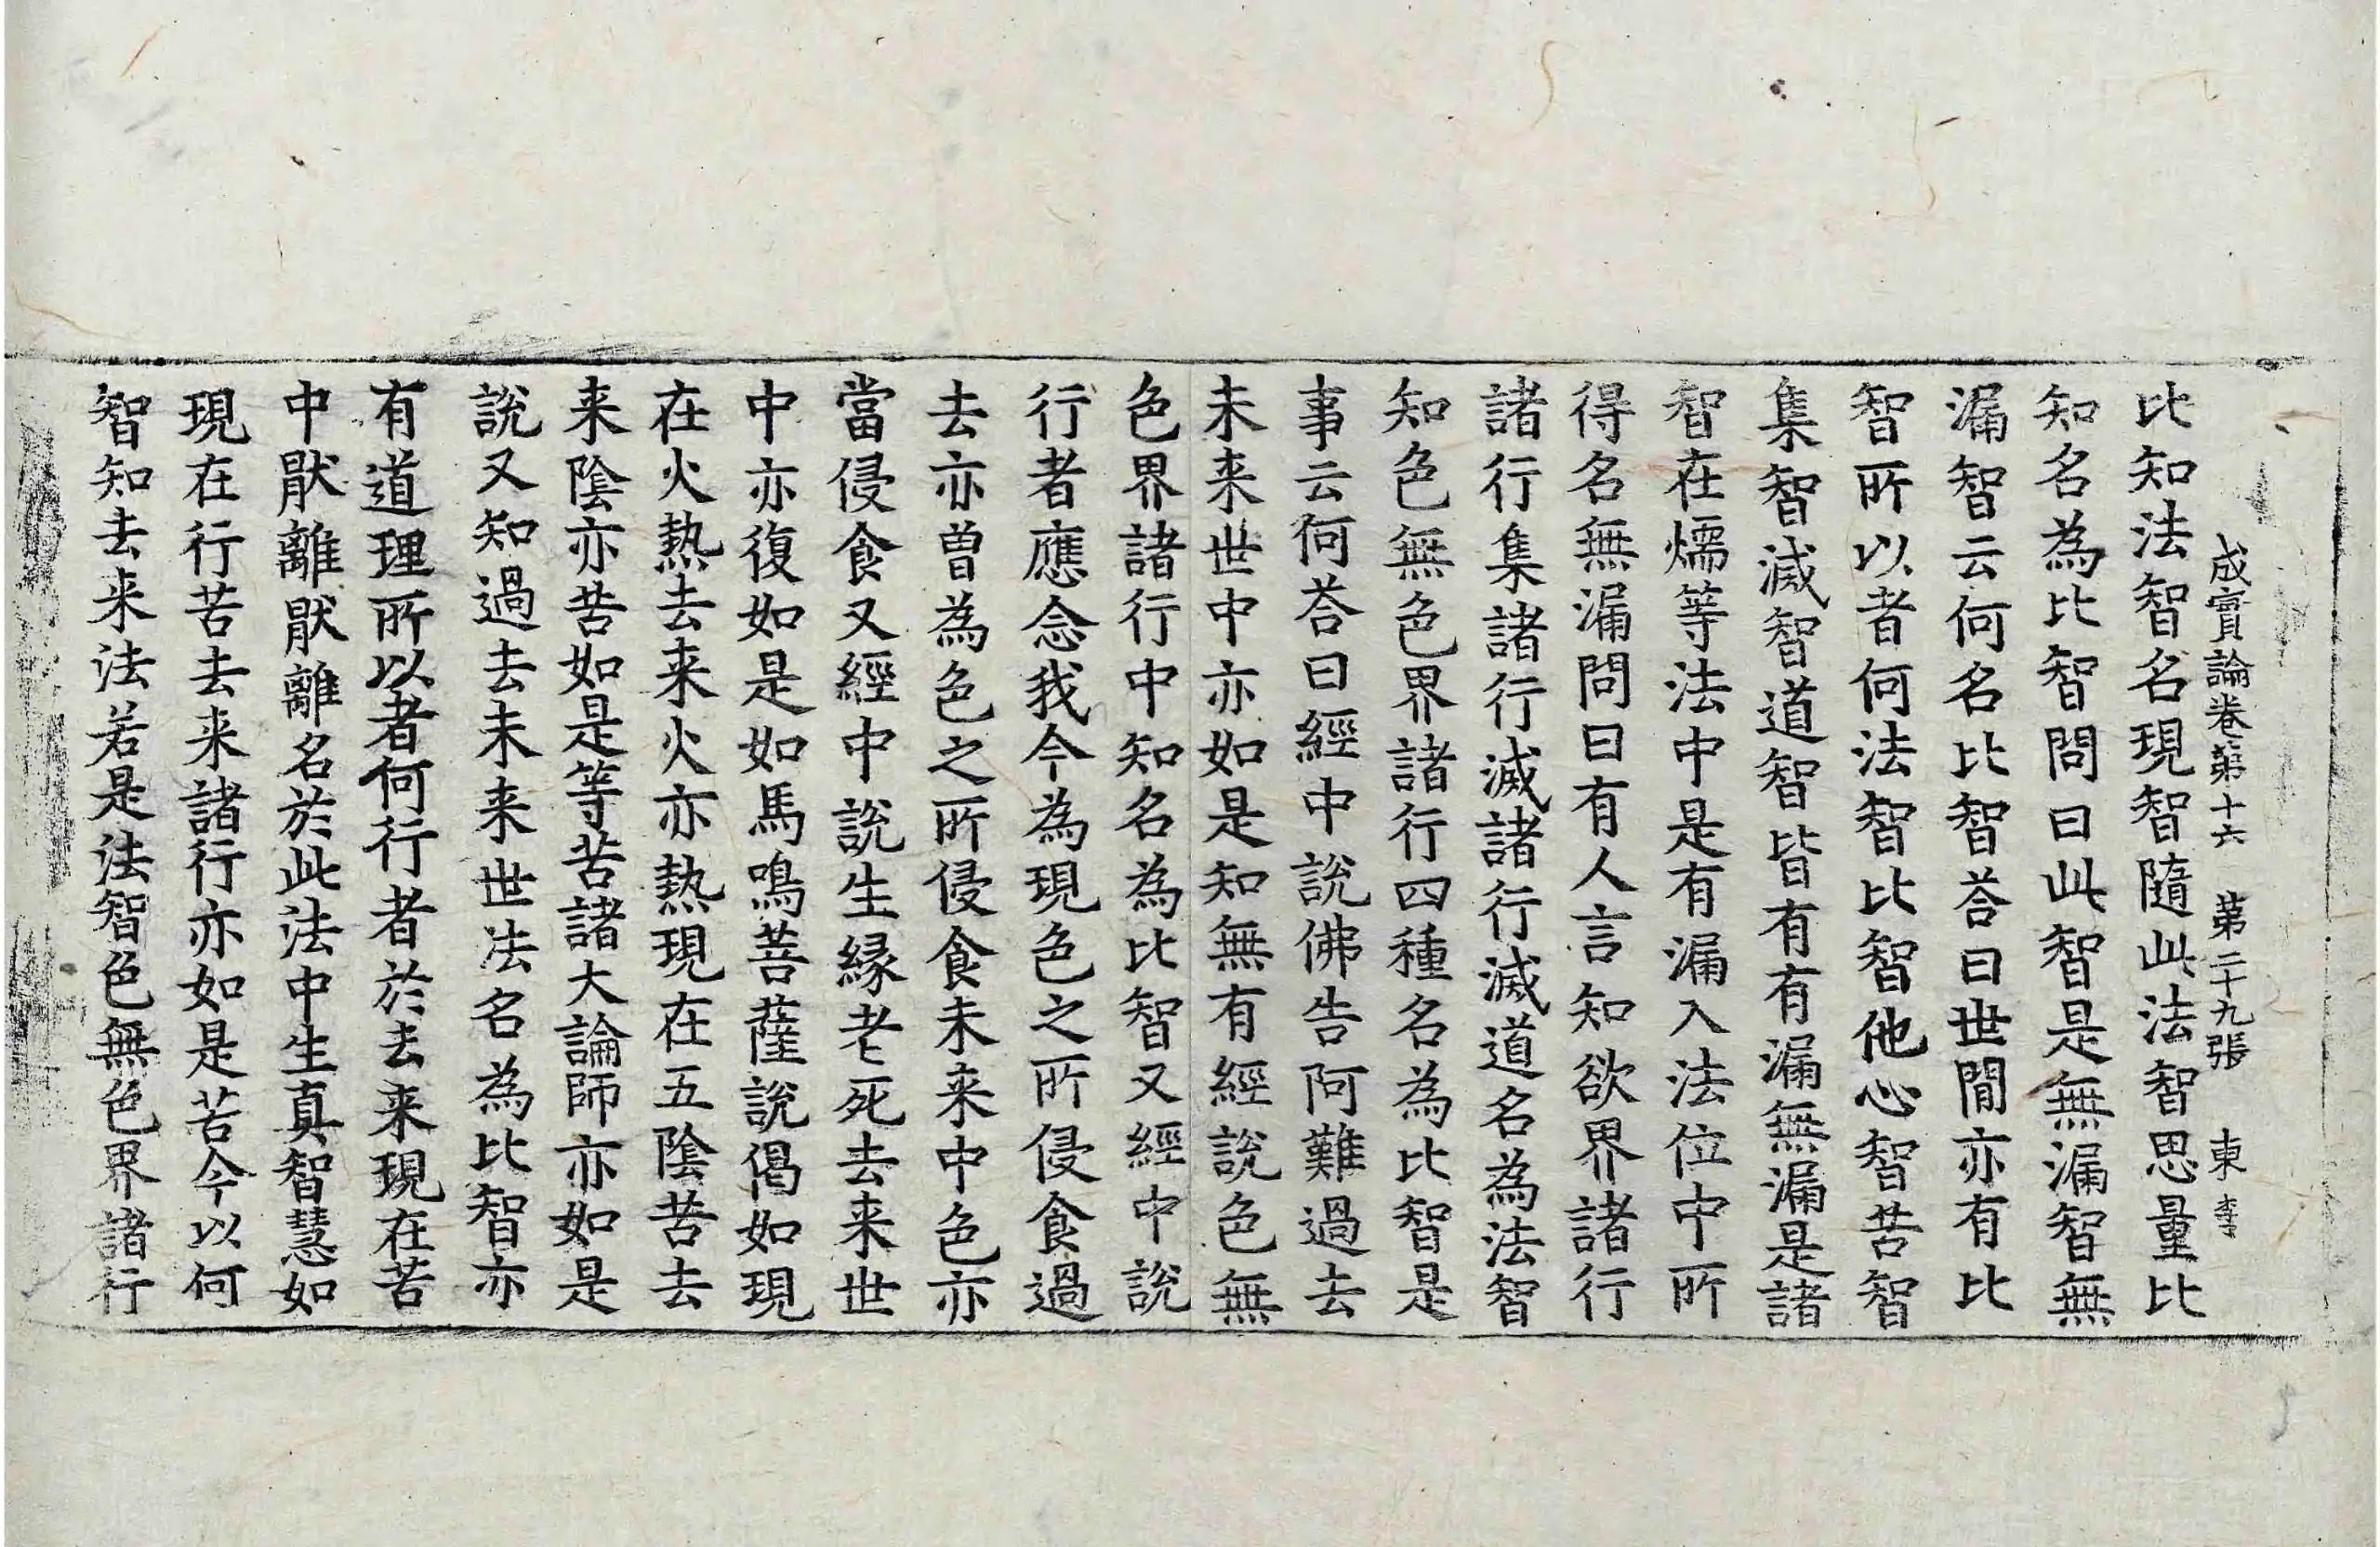 成實論卷第十六 第二十九張 東 李
比知法智名現智隨此法智思量比
知名為比智問曰此智是無漏智無
漏智云何名比智荅曰世閒亦有比
智所以者何法智比智他心智苦智
集智滅智道智皆有有漏無漏是諸
智在燸等法中是有漏入法位中所
得名無漏問曰有人言知欲界諸行
諸行集諸行滅諸行滅道名為法智
知色無色界諸行四種名為比智是
事云何荅曰經中說佛告阿難過去
未来世中亦如是知無有經說色無
色界諸行中知名為比智又經中說
行者應念我今為現色之所侵食過
去亦曾為色之所侵食未来中色亦
當侵食又經中說生緣老死去来世
中亦復如是如馬鳴菩薩說偈如現
在火熱去来火亦熱現在五陰苦去
来陰亦苦如是等苦諸大論師亦如是
說又知過去未来世法名為比智亦
有道理所以者何行者於去来現在苦
中猒離猒離名於此法中生真智慧如
現在行苦去来諸行亦如是苦今以何
智知去来法若是法智色無色界諸行